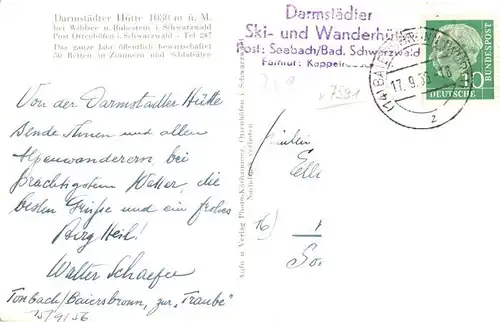 Darmstädter Hütte 1030 m ü. M.
bei Wildsee u. Ruhestein i. Schwarzwald
Post Ottenhöfen i. Schwarzwald - Tel 247
Das ganze Jahr öffentlich bewirtschaftet
50 Betten in Zimmern und Schlafsälen
Darmstädter
Ski- und Wanderhü
Post: Seebach/Bad. Schwarzwald
Fernruf: Kappelro
DEUTSCHE
BUNDESPOST
10
17. 9.
z
v7591
Von der Darmstadter Hütte
sende Ihnen und allen
Alpenwanderern bei
prächtigstem Wetter, die
besten Grüße und ein frohes
Berg Heil!
Walter Schaefer
Tonbach/Baiersbronn, zur „Traube"
15/9/56
Aufn u Verlag Photo-Kilshammer, Ottenhöfen i. Schwarzw
Fräulein
Elli
16)